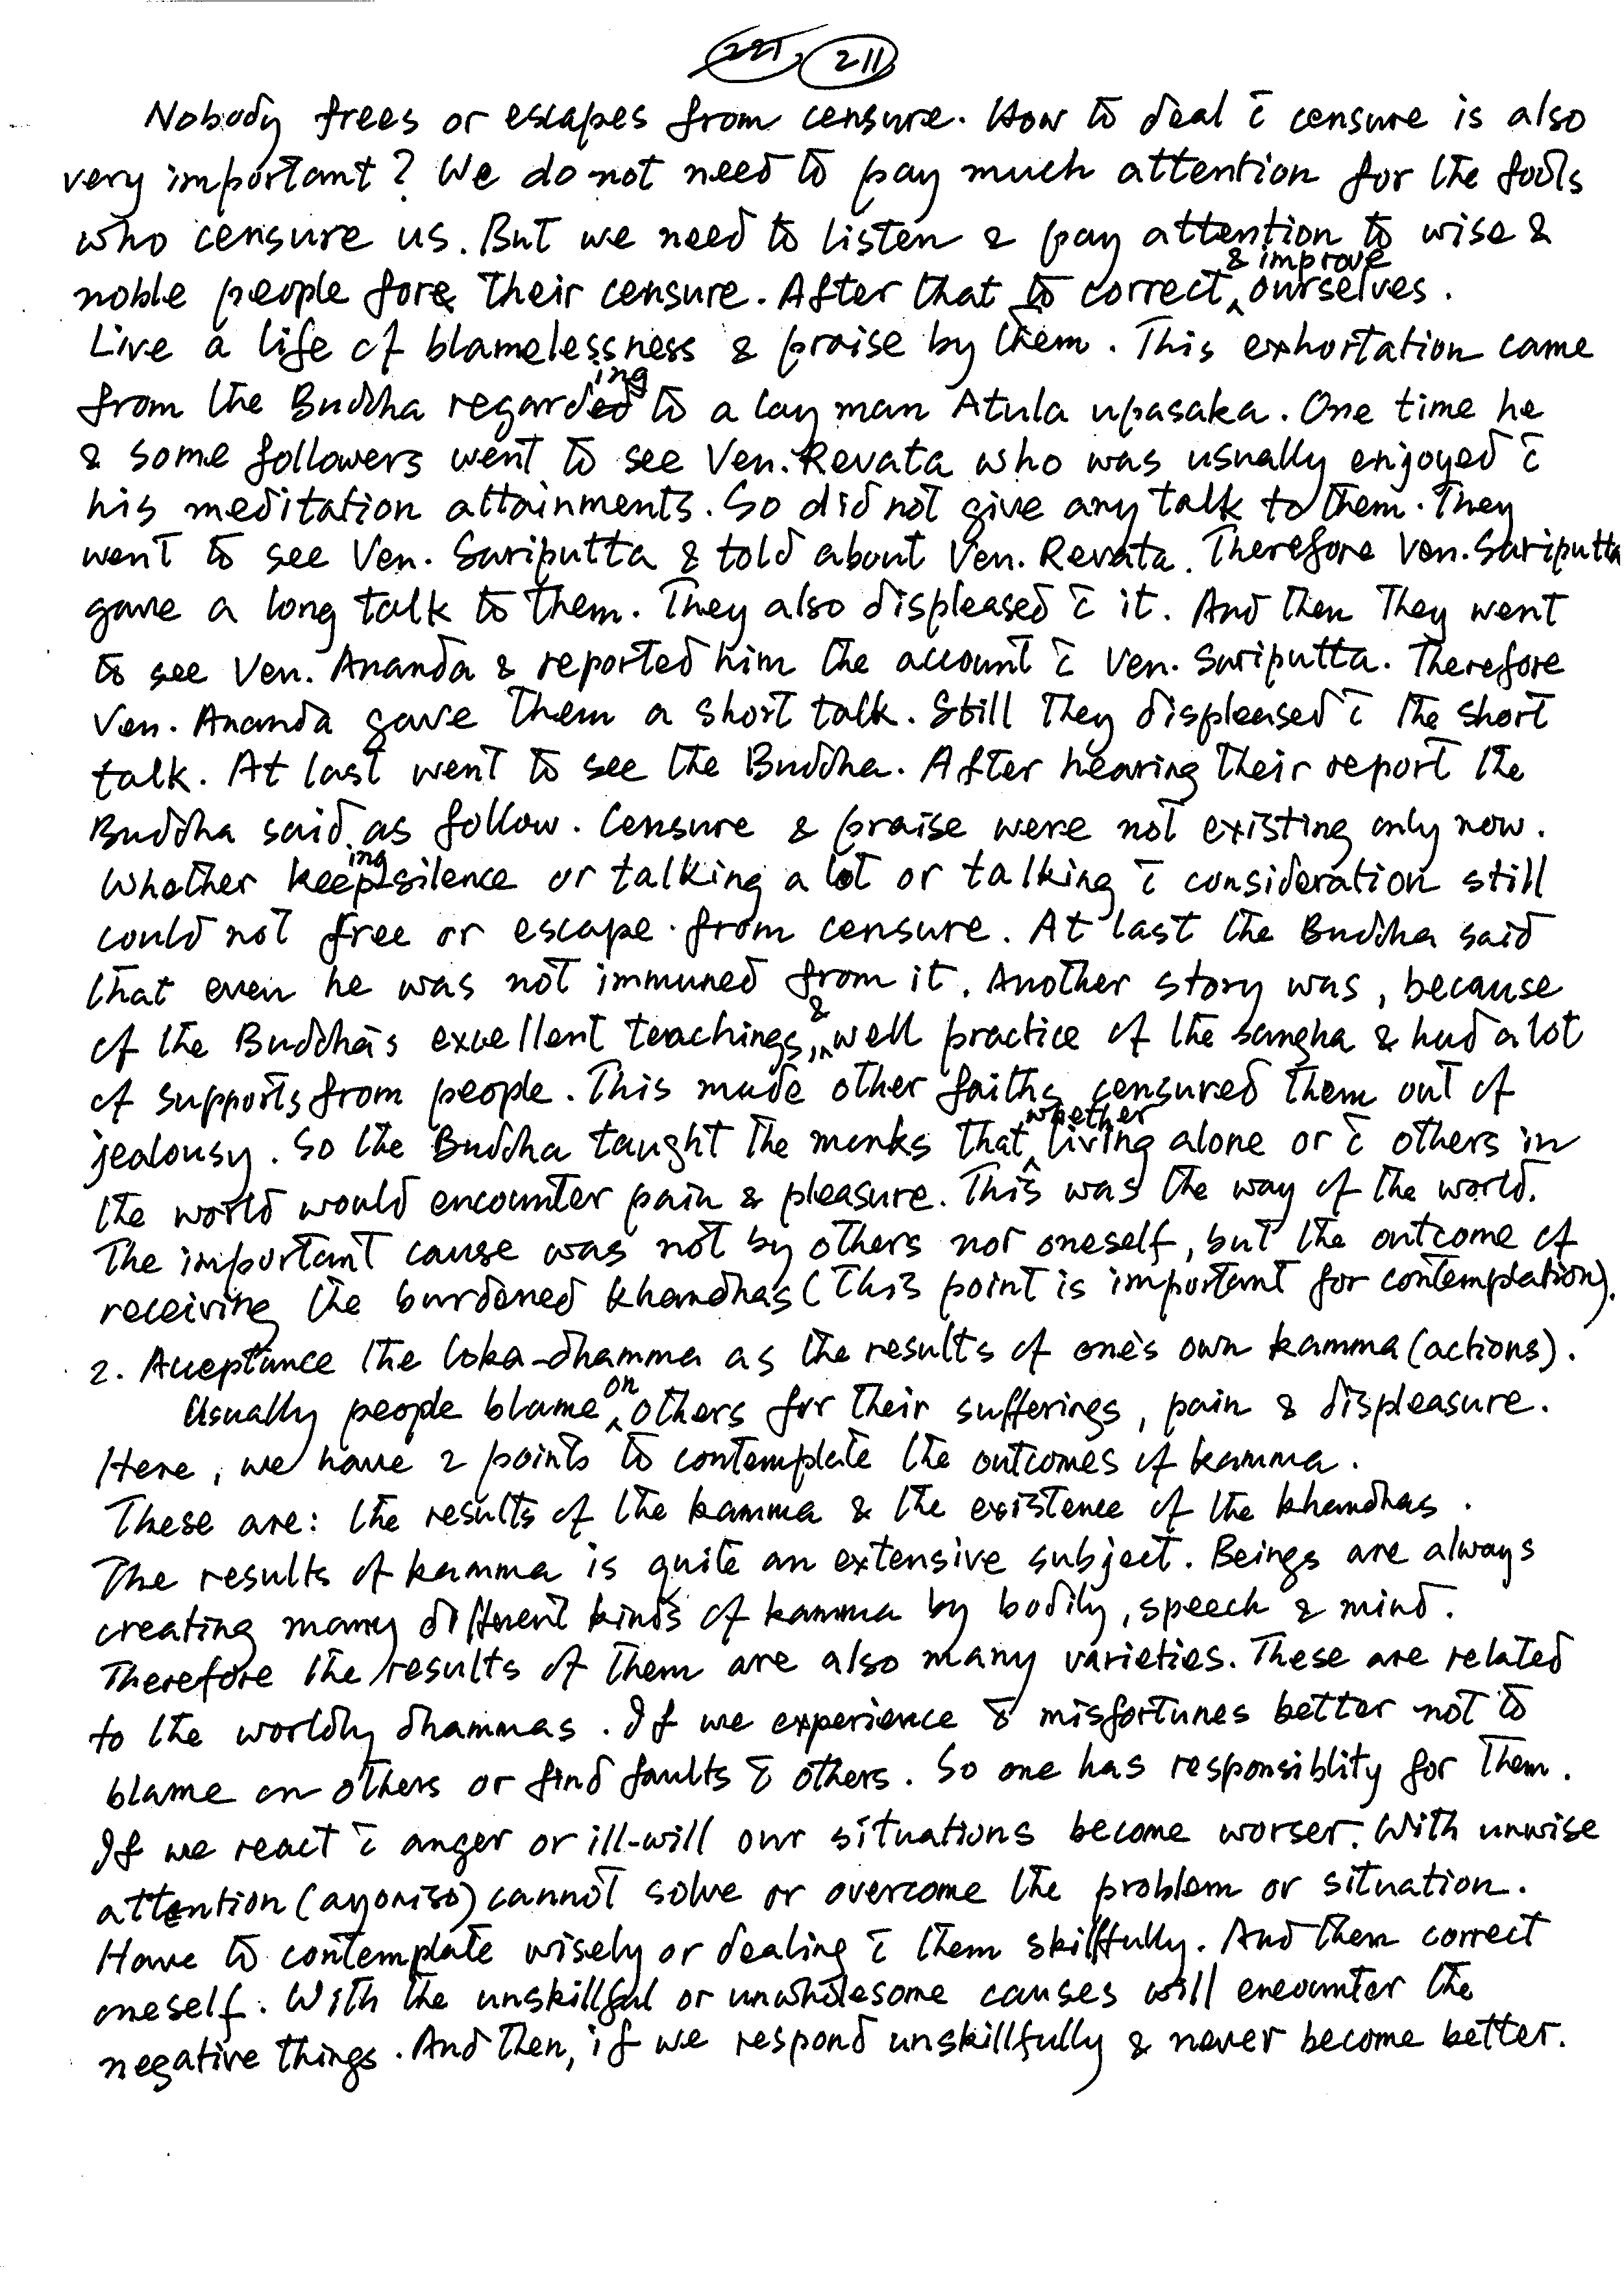 221 211
Nobody frees or escapes from censure. How to deal c̄ censure is also
very important? We do not need to pay much attention for the fools
who censure us. But we need to listen & pay attention to wise &
noble people fore their censure. After that to correct & improve ourselves.
Live a life of blamelessness & praise by them. This exhortation came
from the Buddha regarding to a lay man Atula upasaka. One time he
& some followers went to see Ven. Revata who was usually enjoyed c̄
his meditation attainments. So did not give any talk to them. They
went to see Ven. Sariputta & told about Ven. Revata. Therefore Ven. Sariputta
gave a long talk to them. They also displeased c̄ it. And then They went
to see Ven. Ananda & reported him the account c̄ Ven. Sariputta. Therefore
Ven. Ananda gave them a short talk. Still they displeased c̄ the short
talk. At last went to see the Buddha. After hearing their report the
Buddha said as follow. Censure & praise were not existing only now.
Whether keeping silence or talking a lot or talking c̄ consideration still
could not free or escape from censure. At last the Buddha said
that even he was not immuned from it. Another story was, because
of the Buddha's excellent teachings, & well practice of the sangha & had a lot
of supports from people. This made other faiths censured them out of
jealousy. So the Buddha taught the monks that whether living alone or c̄ others in
the world would encounter pain & pleasure. This was the way of the world.
The important cause was not by others nor oneself, but the outcome of
receiving the burdened khandhas (This point is important for contemplation).
2. Acceptance the loka-dhamma as the results of one's own kamma (actions).
Usually people blame on others for their sufferings, pain & displeasure.
Here, we have 2 points to contemplate the outcomes of kamma.
These are: the results of the kamma & the existence of the khandhas.
The results of kamma is quite an extensive subject. Beings are always
creating many different kinds of kamma by bodily, speech & mind.
Therefore the results of them are also many varieties. These are related
to the worldly dhammas. If we experience c̄ misfortunes better not to
blame on others or find faults c̄ others. So one has responsiblity for them.
If we react c̄ anger or ill-will our situations become worser. With unwise
attention (ayoniso) cannot solve or overcome the problem or situation.
Have to contemplate wisely or dealing c̄ them skillfully. And then correct
oneself. With the unskillful or unwholesome causes will encounter the
negative things. And then, if we respond unskillfully & never become better.